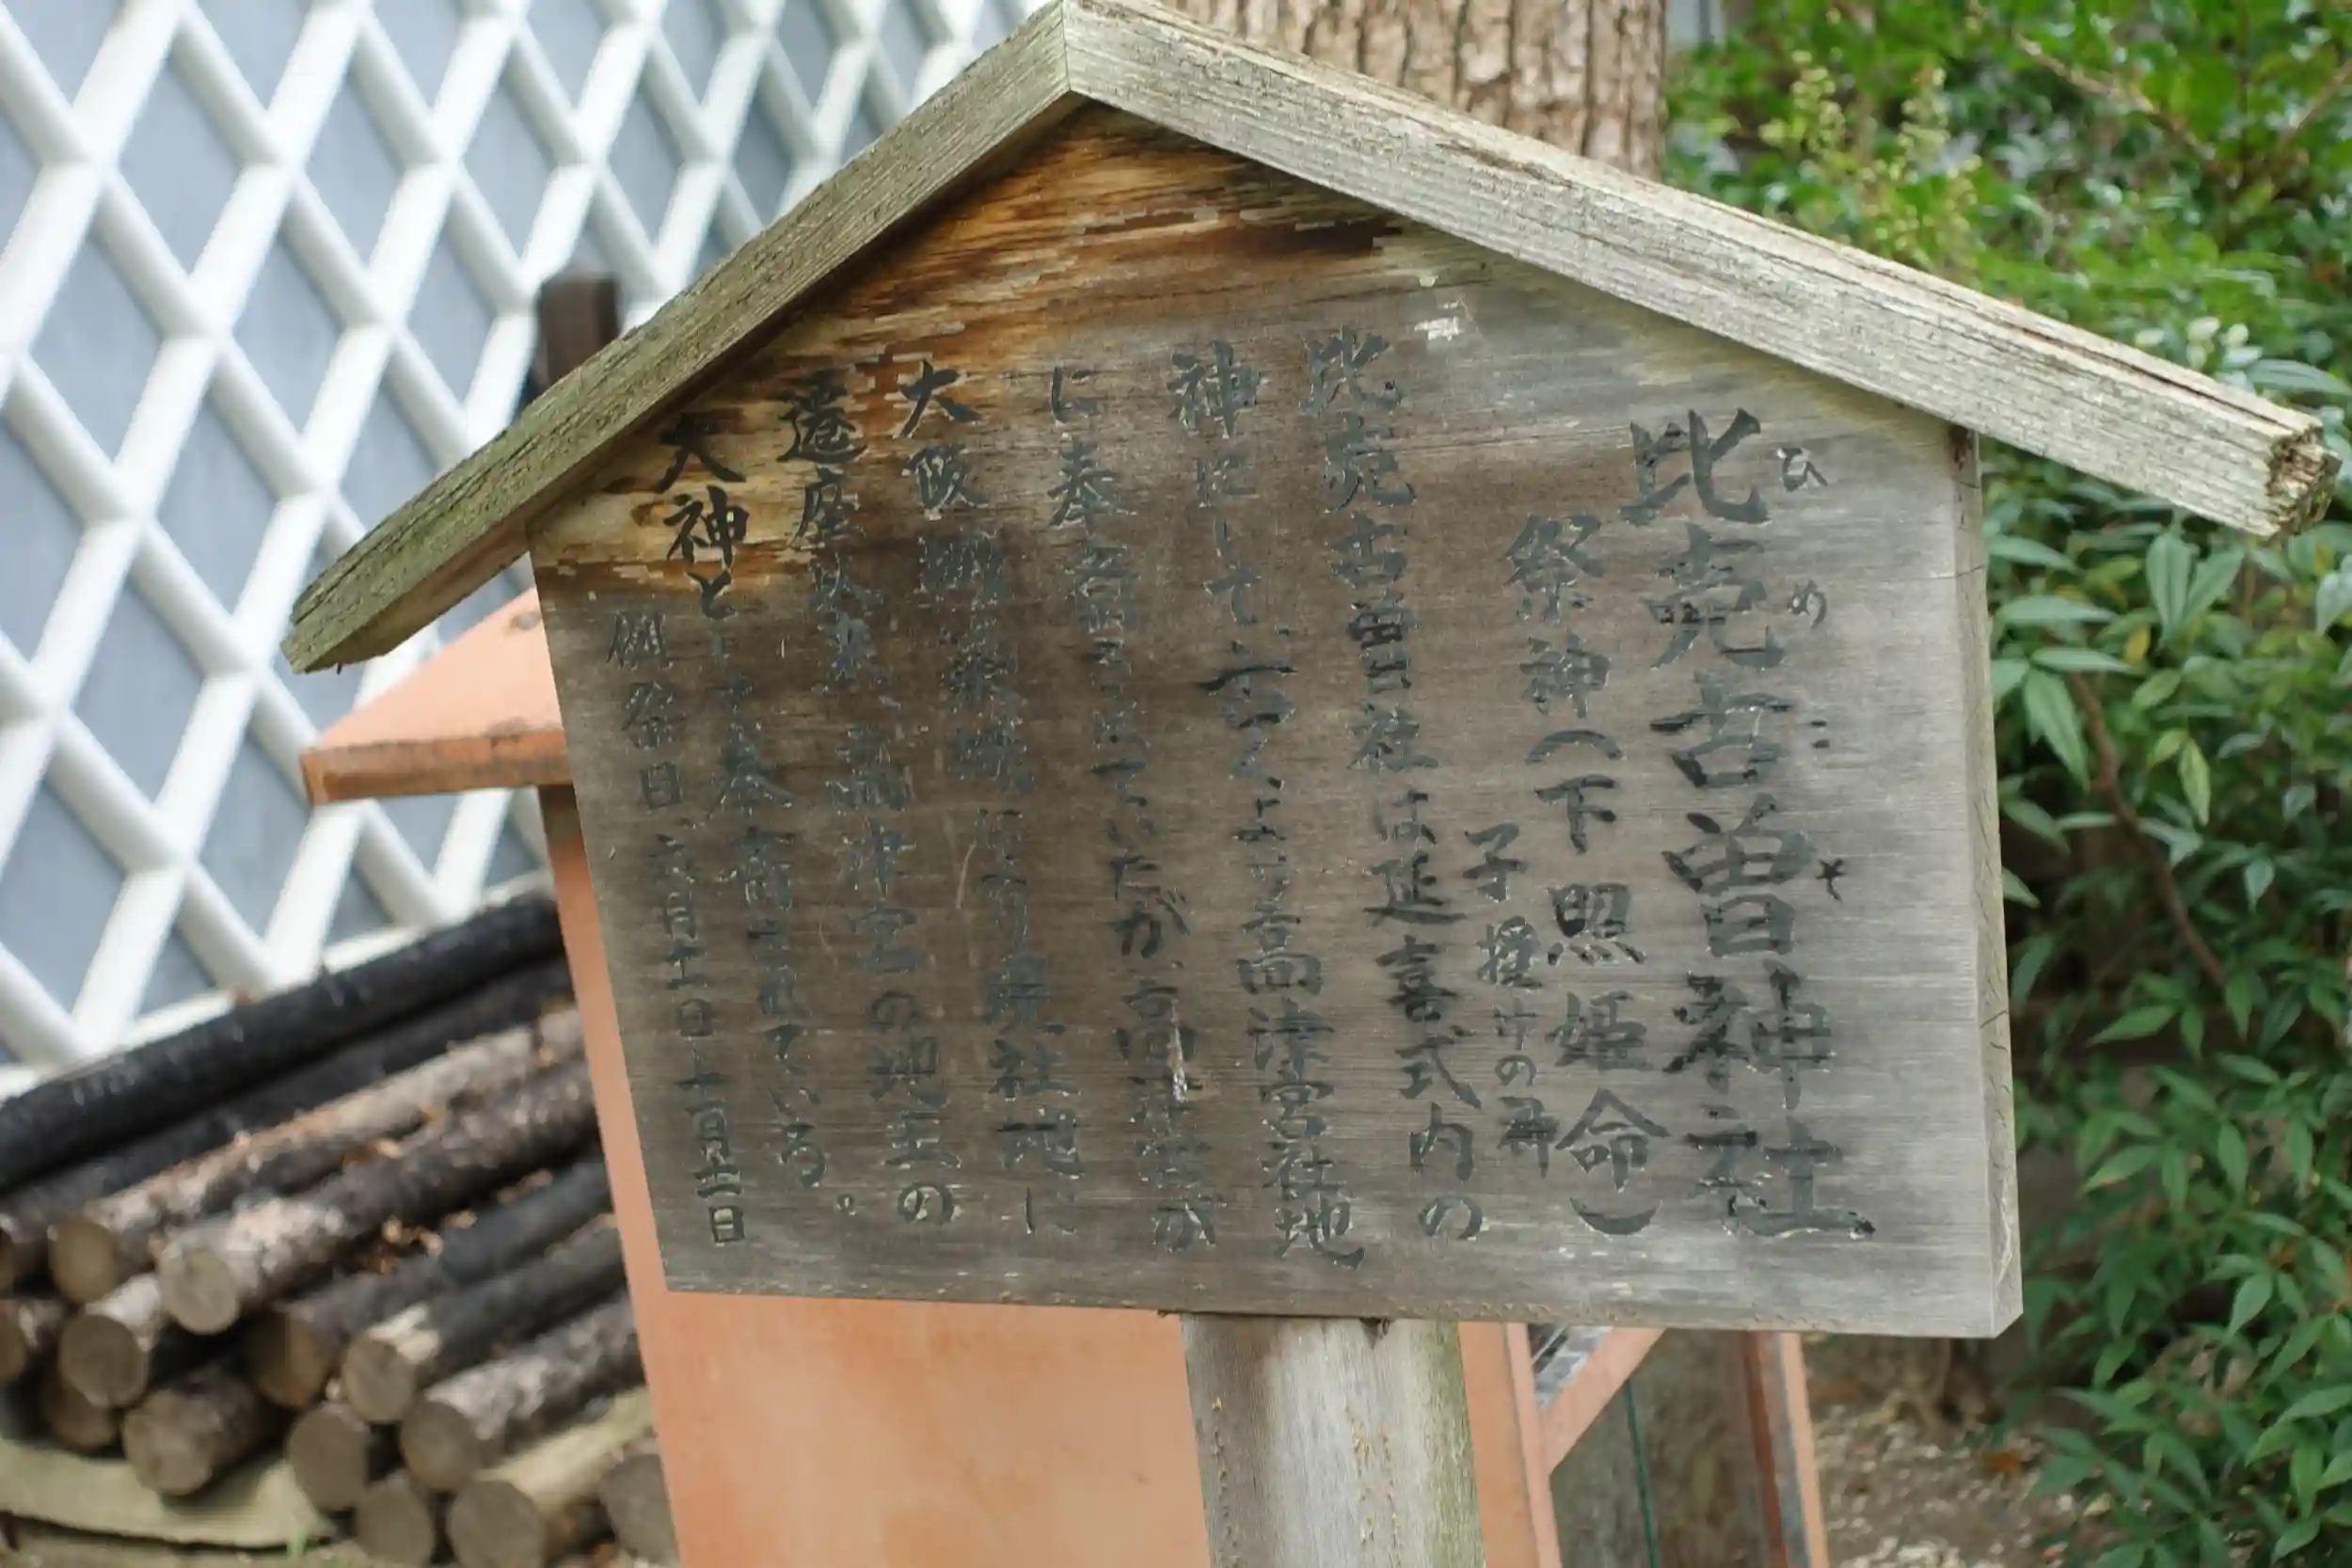 比売古曽神社
ひめこそ
祭神(下照姫命)
子授けの神
比売古曽社は延喜式内の
神にして古くより高津宮社地
に奉斎されていたが、高津宮が
大阪城築城により現社地に
遷座以来、高津宮の地主の
大神として奉斎されている。
例祭日 六月十一日 十一月十一日